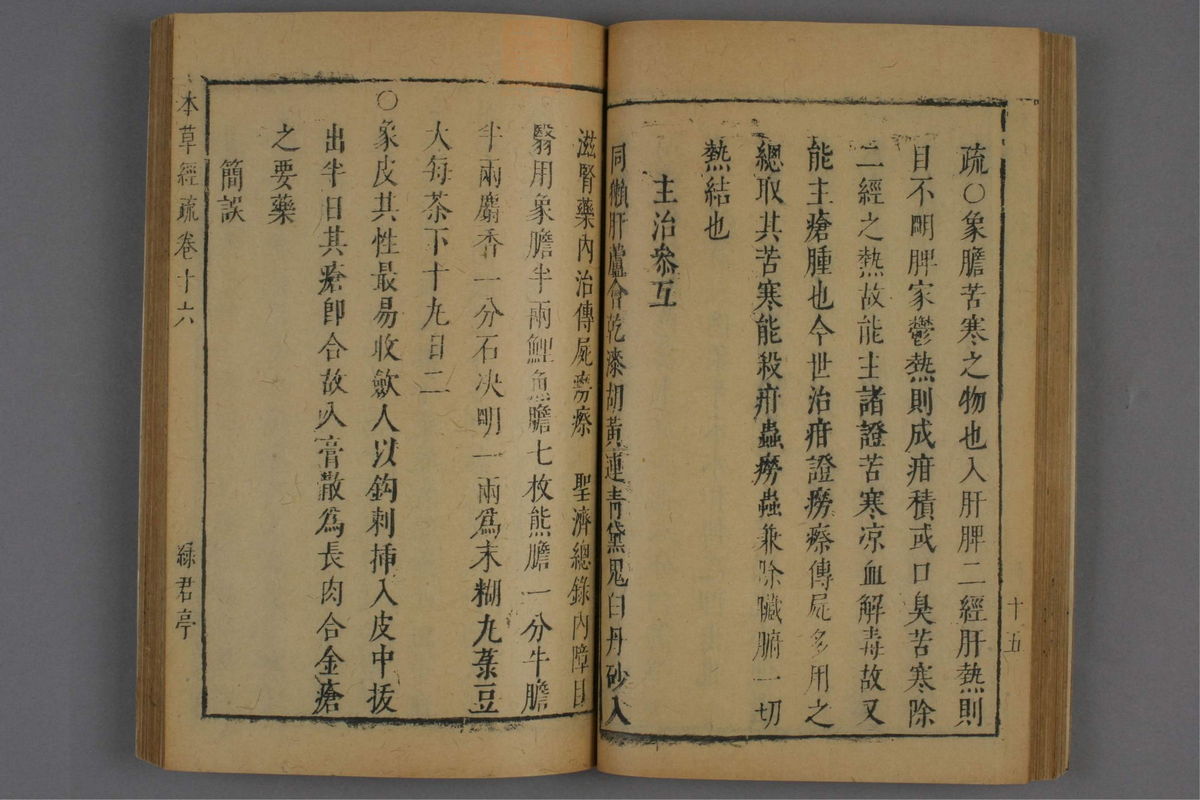 疏○象膽苦寒之物也入肝脾二經肝熱則
目不明脾家鬱熱則成疳積或口臭苦寒除
二經之熱故能主諸證苦寒凉血解毒故又
能主瘡腫也今世治疳證癆瘵傳屍多用之
總取其苦寒能殺疳蟲癆蟲兼除臟腑一切
熱結也
主治參互
同獺肝蘆會乾漆胡黃連青黛鬼臼丹砂入
十五
滋腎藥內治傳屍癆瘵 聖濟總錄內障目
翳用象膽半兩鯉魚膽七枚熊膽一分牛膽
半兩麝香一分石决明一兩為末糊丸菉豆
大每茶下十九日二
○象皮其性最易收歛人以鈎刺揷入皮中拔
出半日其瘡卽合故入膏散爲長肉合金瘡
之要藥
簡誤
本草經疏卷十六
綠君亭